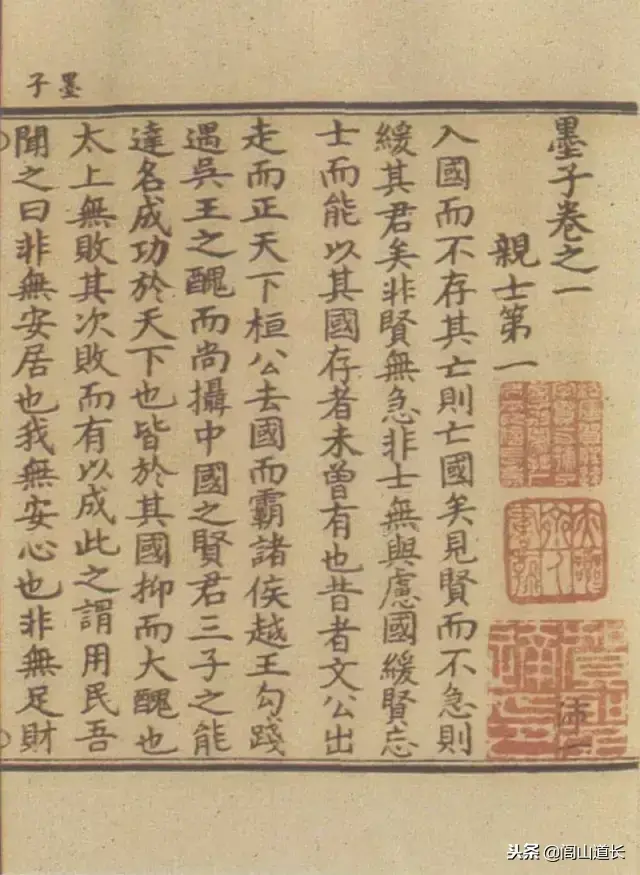 墨子
墨子卷之一
親士第一
入國而不存其亡則亡國矣見賢而不急則
緩其君矣非賢無急非士無與慮國緩賢忘
士而能以其國存者未曾有也昔者文公出
走而正天下桓公去國而霸諸侯越王勾踐
遇吳王之醜而尚攝中國之賢君三子之能
達名成功於天下也皆於其國抑而大醜也
太上無敗其次敗而有以成此之謂用民吾
聞之曰非無安居也我無安心也非無足財
头条 @闾山道长